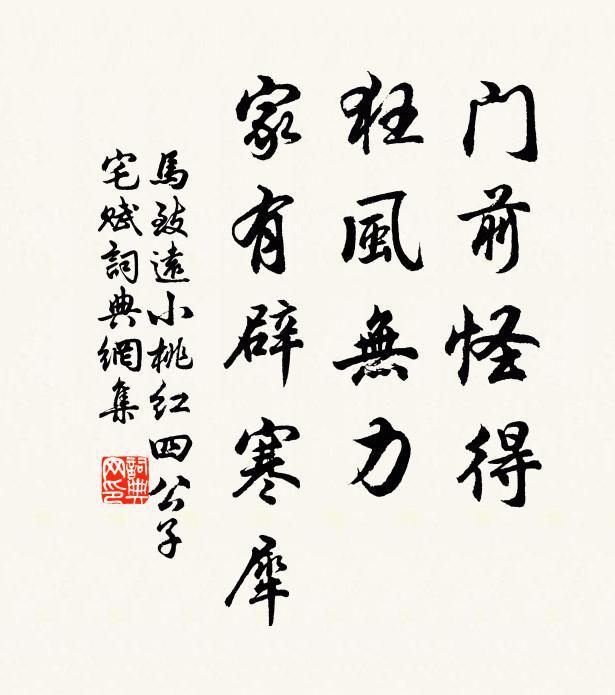 门前怪得
狂風無力
家有辟寒犀
馬致遠小桃紅四公子
宅赋詞典網集
詞典
网印